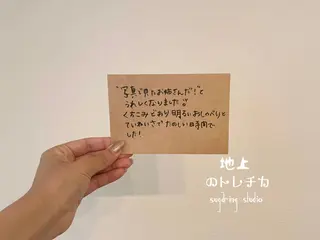 "写真で見たお姉さんだ!"と
うれしくなりました
くちこみどおり明るいおしゃべりと
ていねいさで たのしい日時間で
した!
地上
のトレチカ